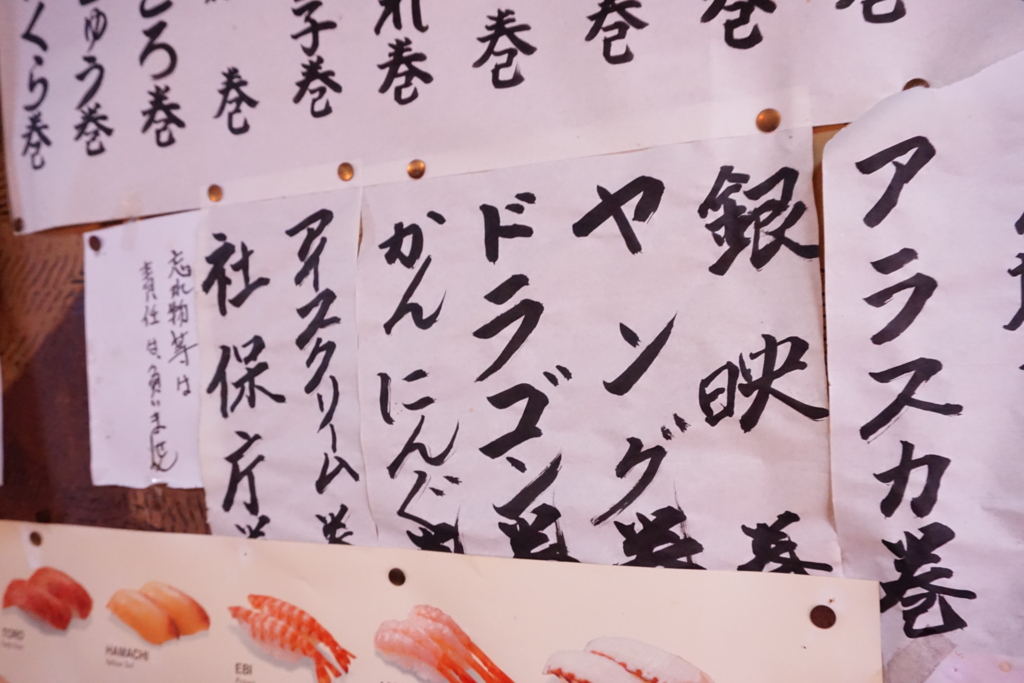 巻
巻
巻
れ巻
子巻
巻
ころ巻
ゅう巻
くら巻
アラスカ巻
銀映巻
ヤング巻
ドラゴン巻
かんにんぐ
アイスクリーム巻
社保庁巻
忘れ物等は
責任は負いません
TORO
HAMACHI
EBI